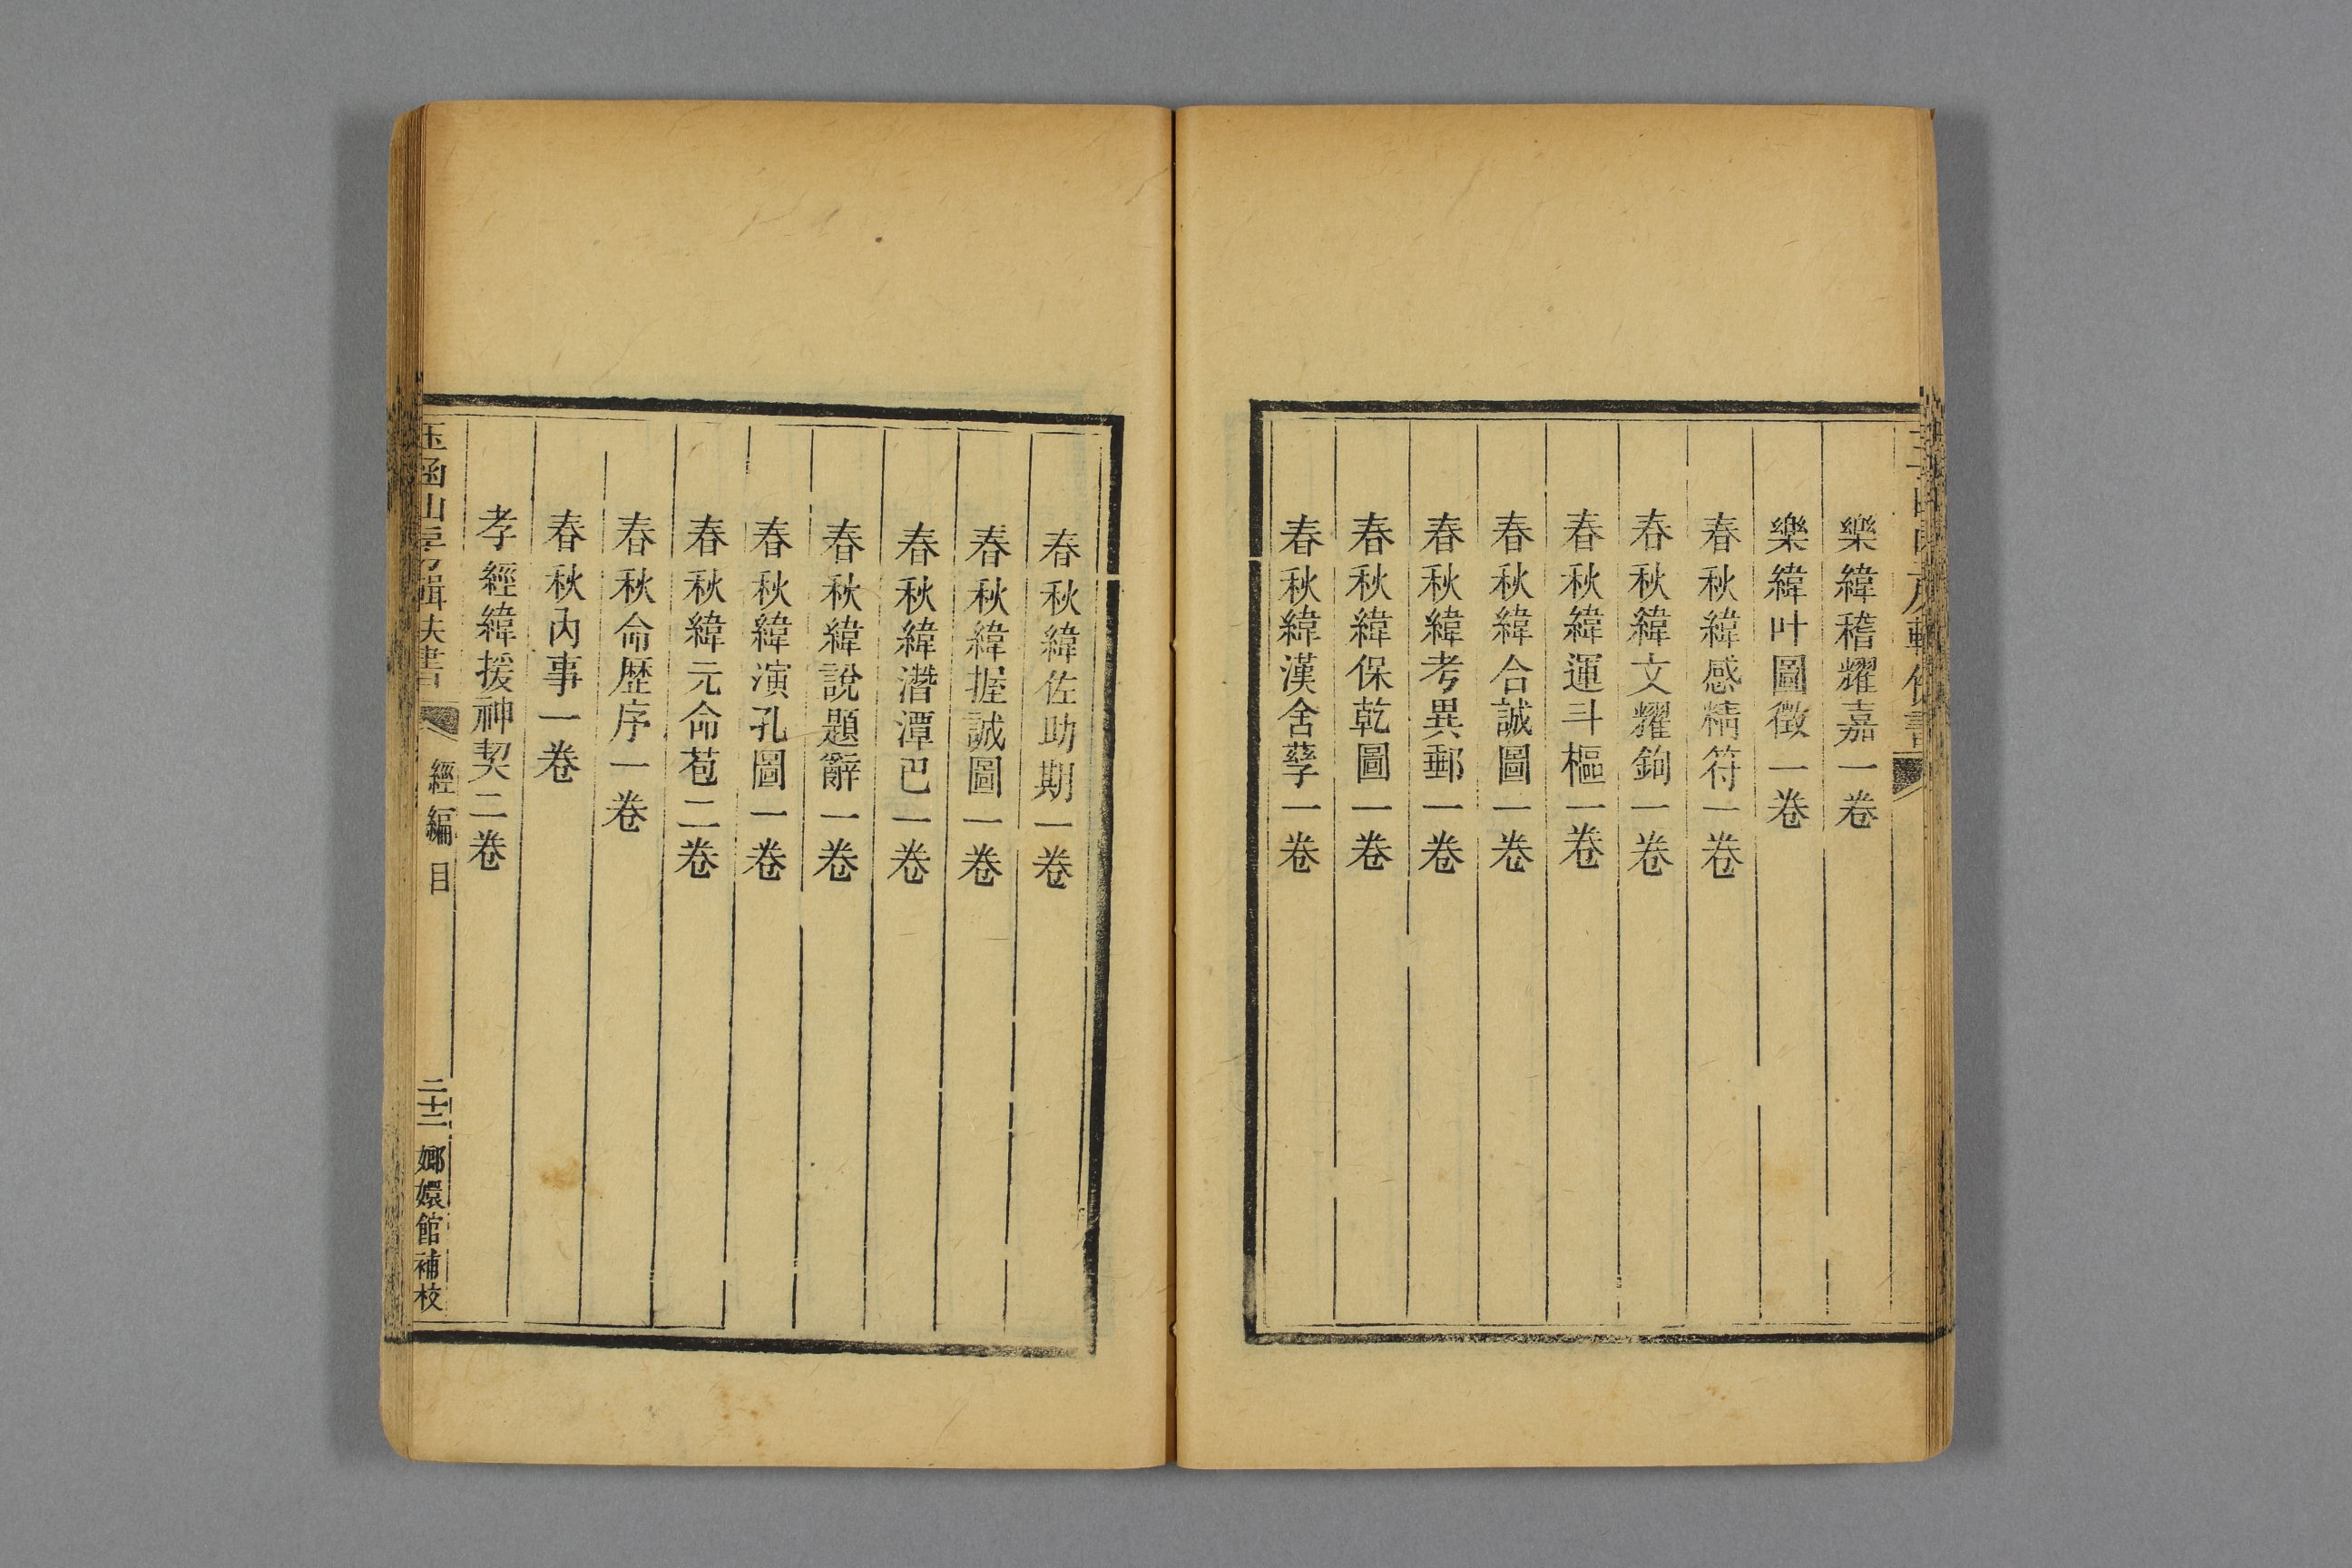 樂緯稽耀嘉一卷
樂緯叶圖徵一卷
春秋緯感精符一卷
春秋緯文耀鉤一卷
春秋緯運斗樞一卷
春秋緯合誠圖一卷
春秋緯考異郵一卷
春秋緯保乾圖一卷
春秋緯漢含孳一卷
春秋緯佐助期一卷
春秋緯握誠圖一卷
春秋緯潛潭巴一卷
春秋緯說題辭一卷
春秋緯演孔圖一卷
春秋緯元命苞二卷
春秋命歷序一卷
春秋內事一卷
孝經緯援神契二卷
玉函山房輯佚書 經編目 二十二 嫏嬛館補校